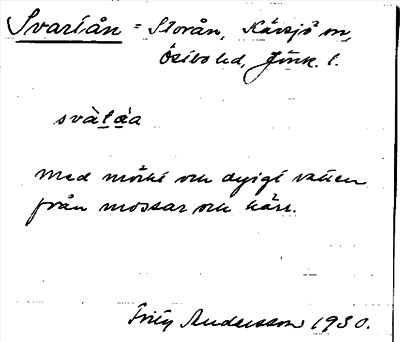 Svartån = Storån, Kävsjö sn,
Östbo hd, Jönk. l.
svàlå̀a
med mörkt och dyigt vatten
från mossar och kärr.
Fritz Andersson 1930.